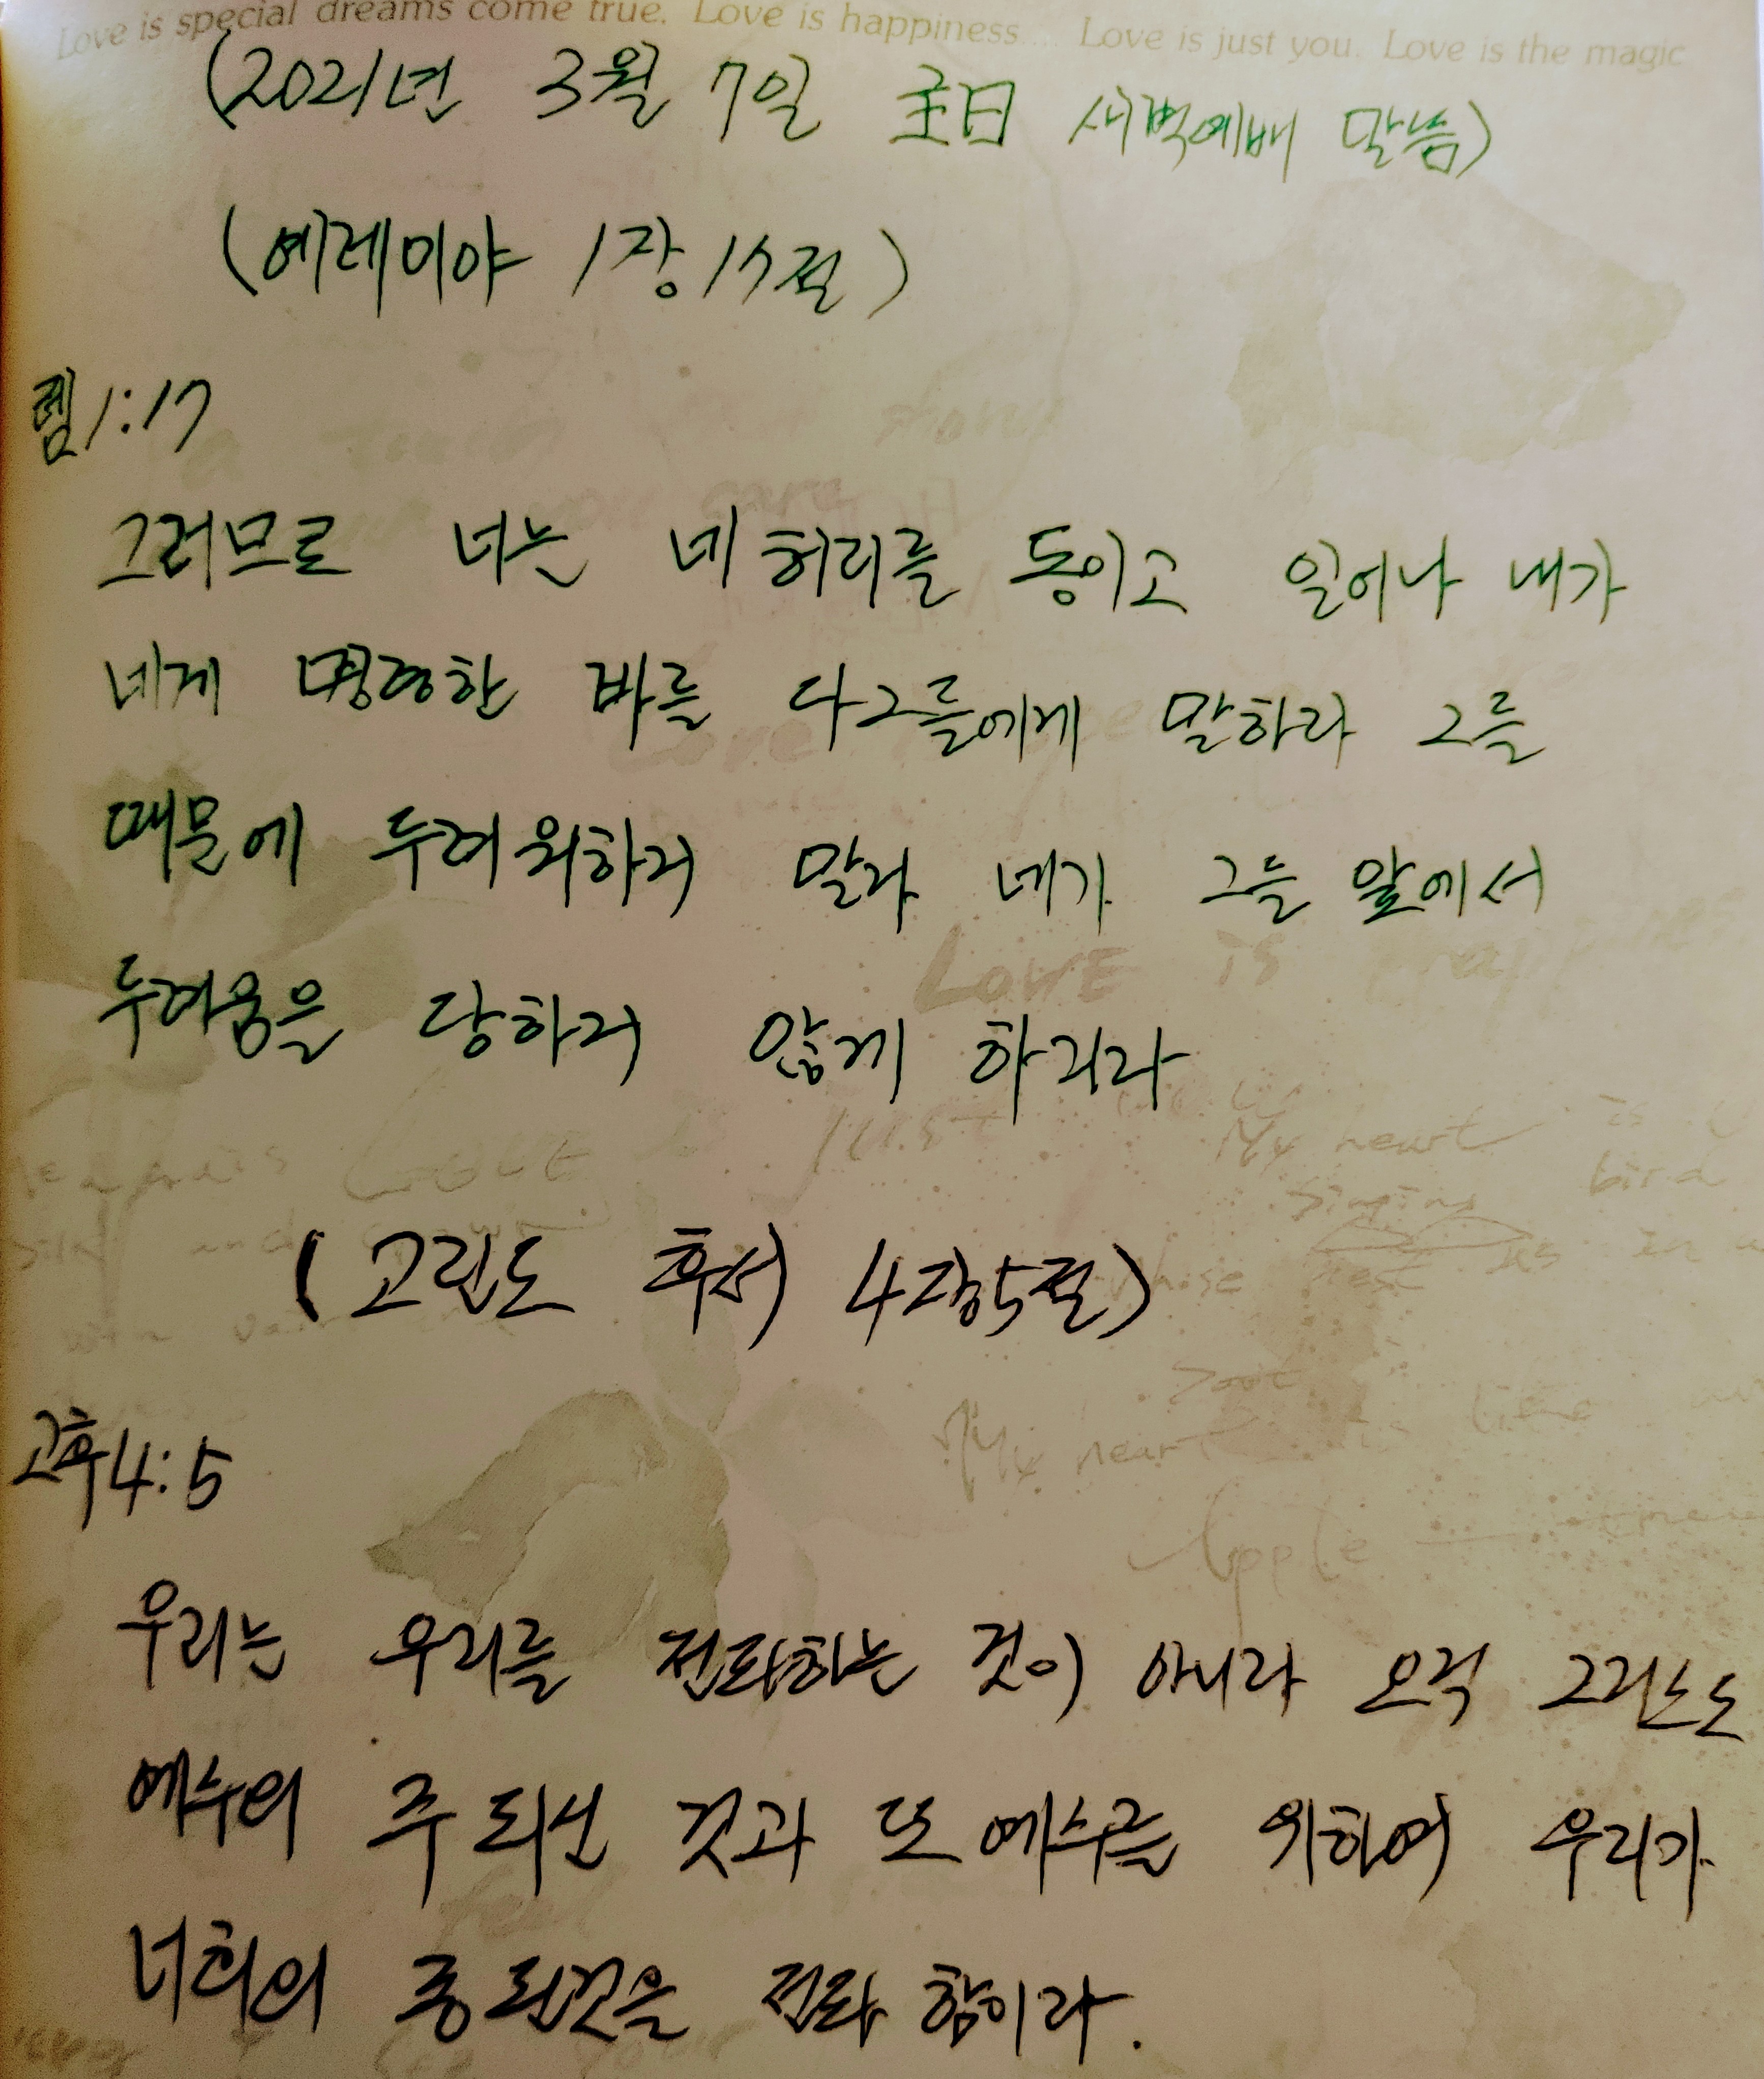 Love is special dreams come true. Love is happiness.... Love is just you. Love is the magic
(2021년 3월 7일 主日 새벽예배 말씀)
(예레미야 1장 17절)
렘1:17
그러므로 너는 네 허리를 동이고 일어나 내가
네게 명령한 바를 다 그들에게 말하라 그들
때문에 두려워하지 말라 네가 그들 앞에서
두려움을 당하지 않게 하리라
LOVE is
My heart is
singing bird
(고린도 후서 4장5절)
whose nest is in a
My heart is like
고후4:5
Apple
우리는 우리를 전파하는 것이 아니라 오직 그리스도
예수의 주 되신 것과 또 예수를 위하여 우리가
너희의 종 된것을 전파 함이라.